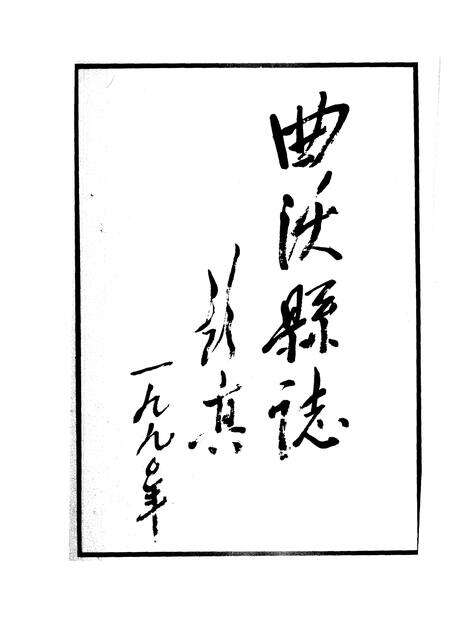 曲沃縣誌
彭真
一九九〇年